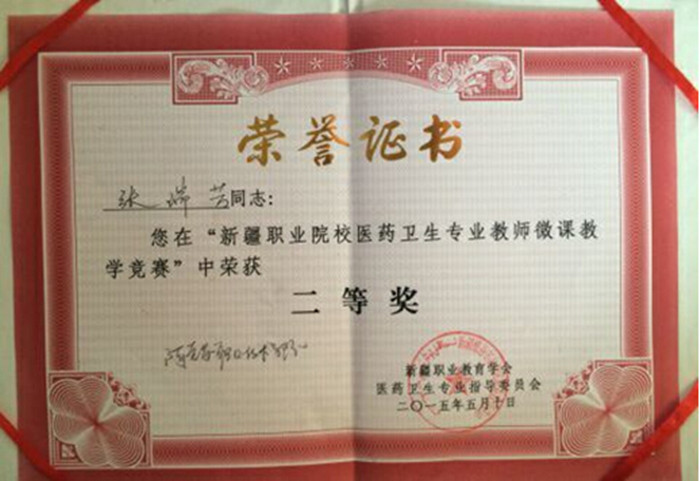 荣誉证书
张瑞芳同志：
您在“新疆职业院校医药卫生专业教师微课教
学竞赛”中荣获
二等奖
新疆职业教育学会
医药卫生专业指导委员会
二〇一五年五月十日